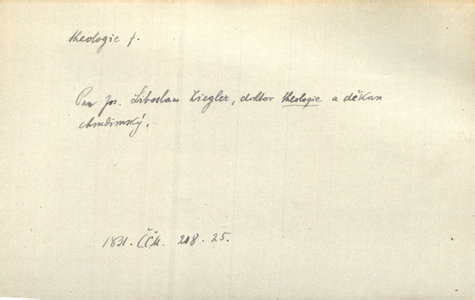 theologie f.
Pan Jos. Liboslaw Ziegler, doktor theologie a děkan
chrudimský.
1831. ČČM. 208. 25.